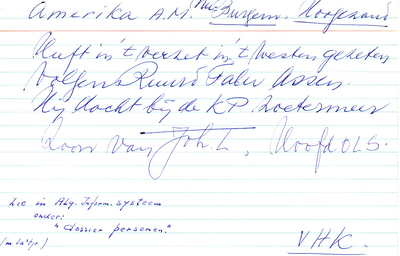 Amerika A.M. nu: Burgem. Hoogezand
Heeft in 't verzet in 't westen gezeten
volgens Ruurd Faber Assen.
Hij dacht bij de KP Zoetermeer
Zoon van Joh. L, Hoofd OLS.
Zie in Alg. Inform. systeem
onder:
"dossier personen."
(m la'tje)
VHK.